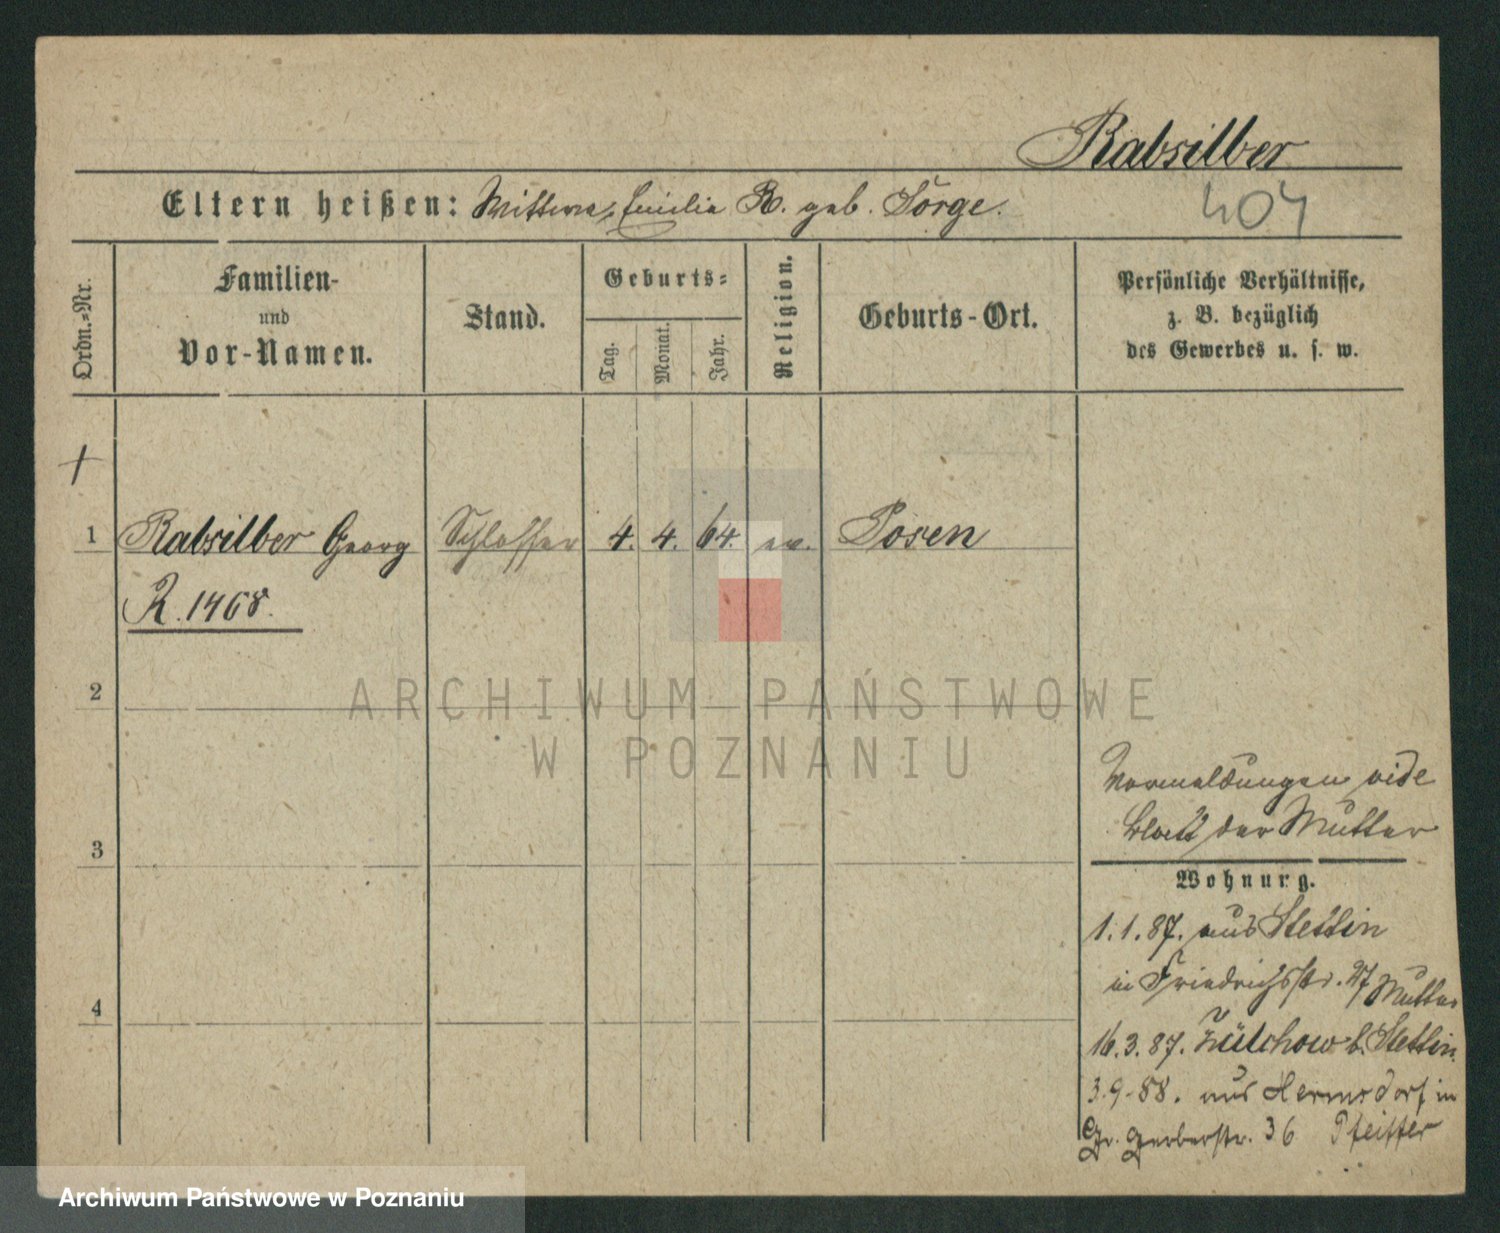 Rabsilber
Eltern heißen: Wittwe Emilia R. geb. Sorge.
404
Ordn.-Nr.
Familien-
und
Vor-Namen.
Stand.
Geburts-
Tag.
Monat.
Jahr.
Religion.
Geburts-Ort.
Persönliche Verhältnisse,
z. B. bezüglich
des Gewerbes u. s. w.
1 Rabsilber Georg Schlosser 4. 4. 64. ev. Posen
R. 1468.
2
ARCHIWUM PAŃSTWOWE
W POZNANIU
Vormeldungen vide
Blatt der Mutter
3
Wohnung.
1.1.87. aus Stettin
in Friedrichsstr. 27 Mutter
4
16.3.87. Züllchow b. Stettin.
3.9.88. aus Hermsdorf in
Gr. Gerberstr. 36 Pfeiffer
Archiwum Państwowe w Poznaniu